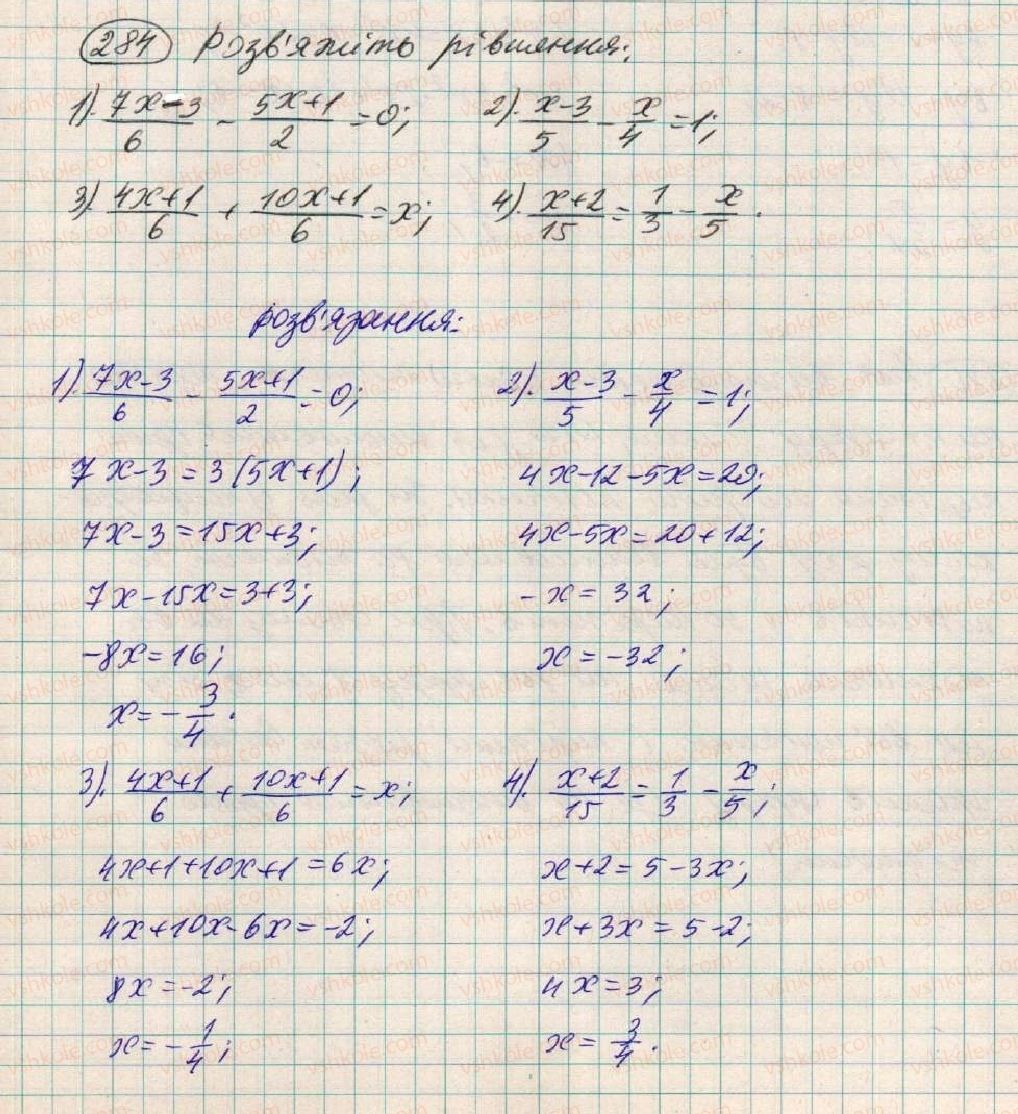 284 Розв'яжіть рівняння:
1). (7x-3)/6 - (5x+1)/2 = 0; 2). (x-3)/5 - x/4 = 1;
3). (4x+1)/6 + (10x+1)/6 = x; 4). (x+2)/15 = 1/3 - x/5.
Розв'язання:
1). (7x-3)/6 - (5x+1)/2 = 0;
7x-3 = 3(5x+1);
7x-3 = 15x+3;
7x-15x = 3+3;
-8x = 16;
x = -3/4.
2). (x-3)/5 - x/4 = 1;
4x-12-5x = 20;
4x-5x = 20+12;
-x = 32;
x = -32;
3). (4x+1)/6 + (10x+1)/6 = x;
4x+1+10x+1 = 6x;
4x+10x-6x = -2;
8x = -2;
x = -1/4;
4). (x+2)/15 = 1/3 - x/5;
x+2 = 5-3x;
x+3x = 5-2;
4x = 3;
x = 3/4.
vshkole.com